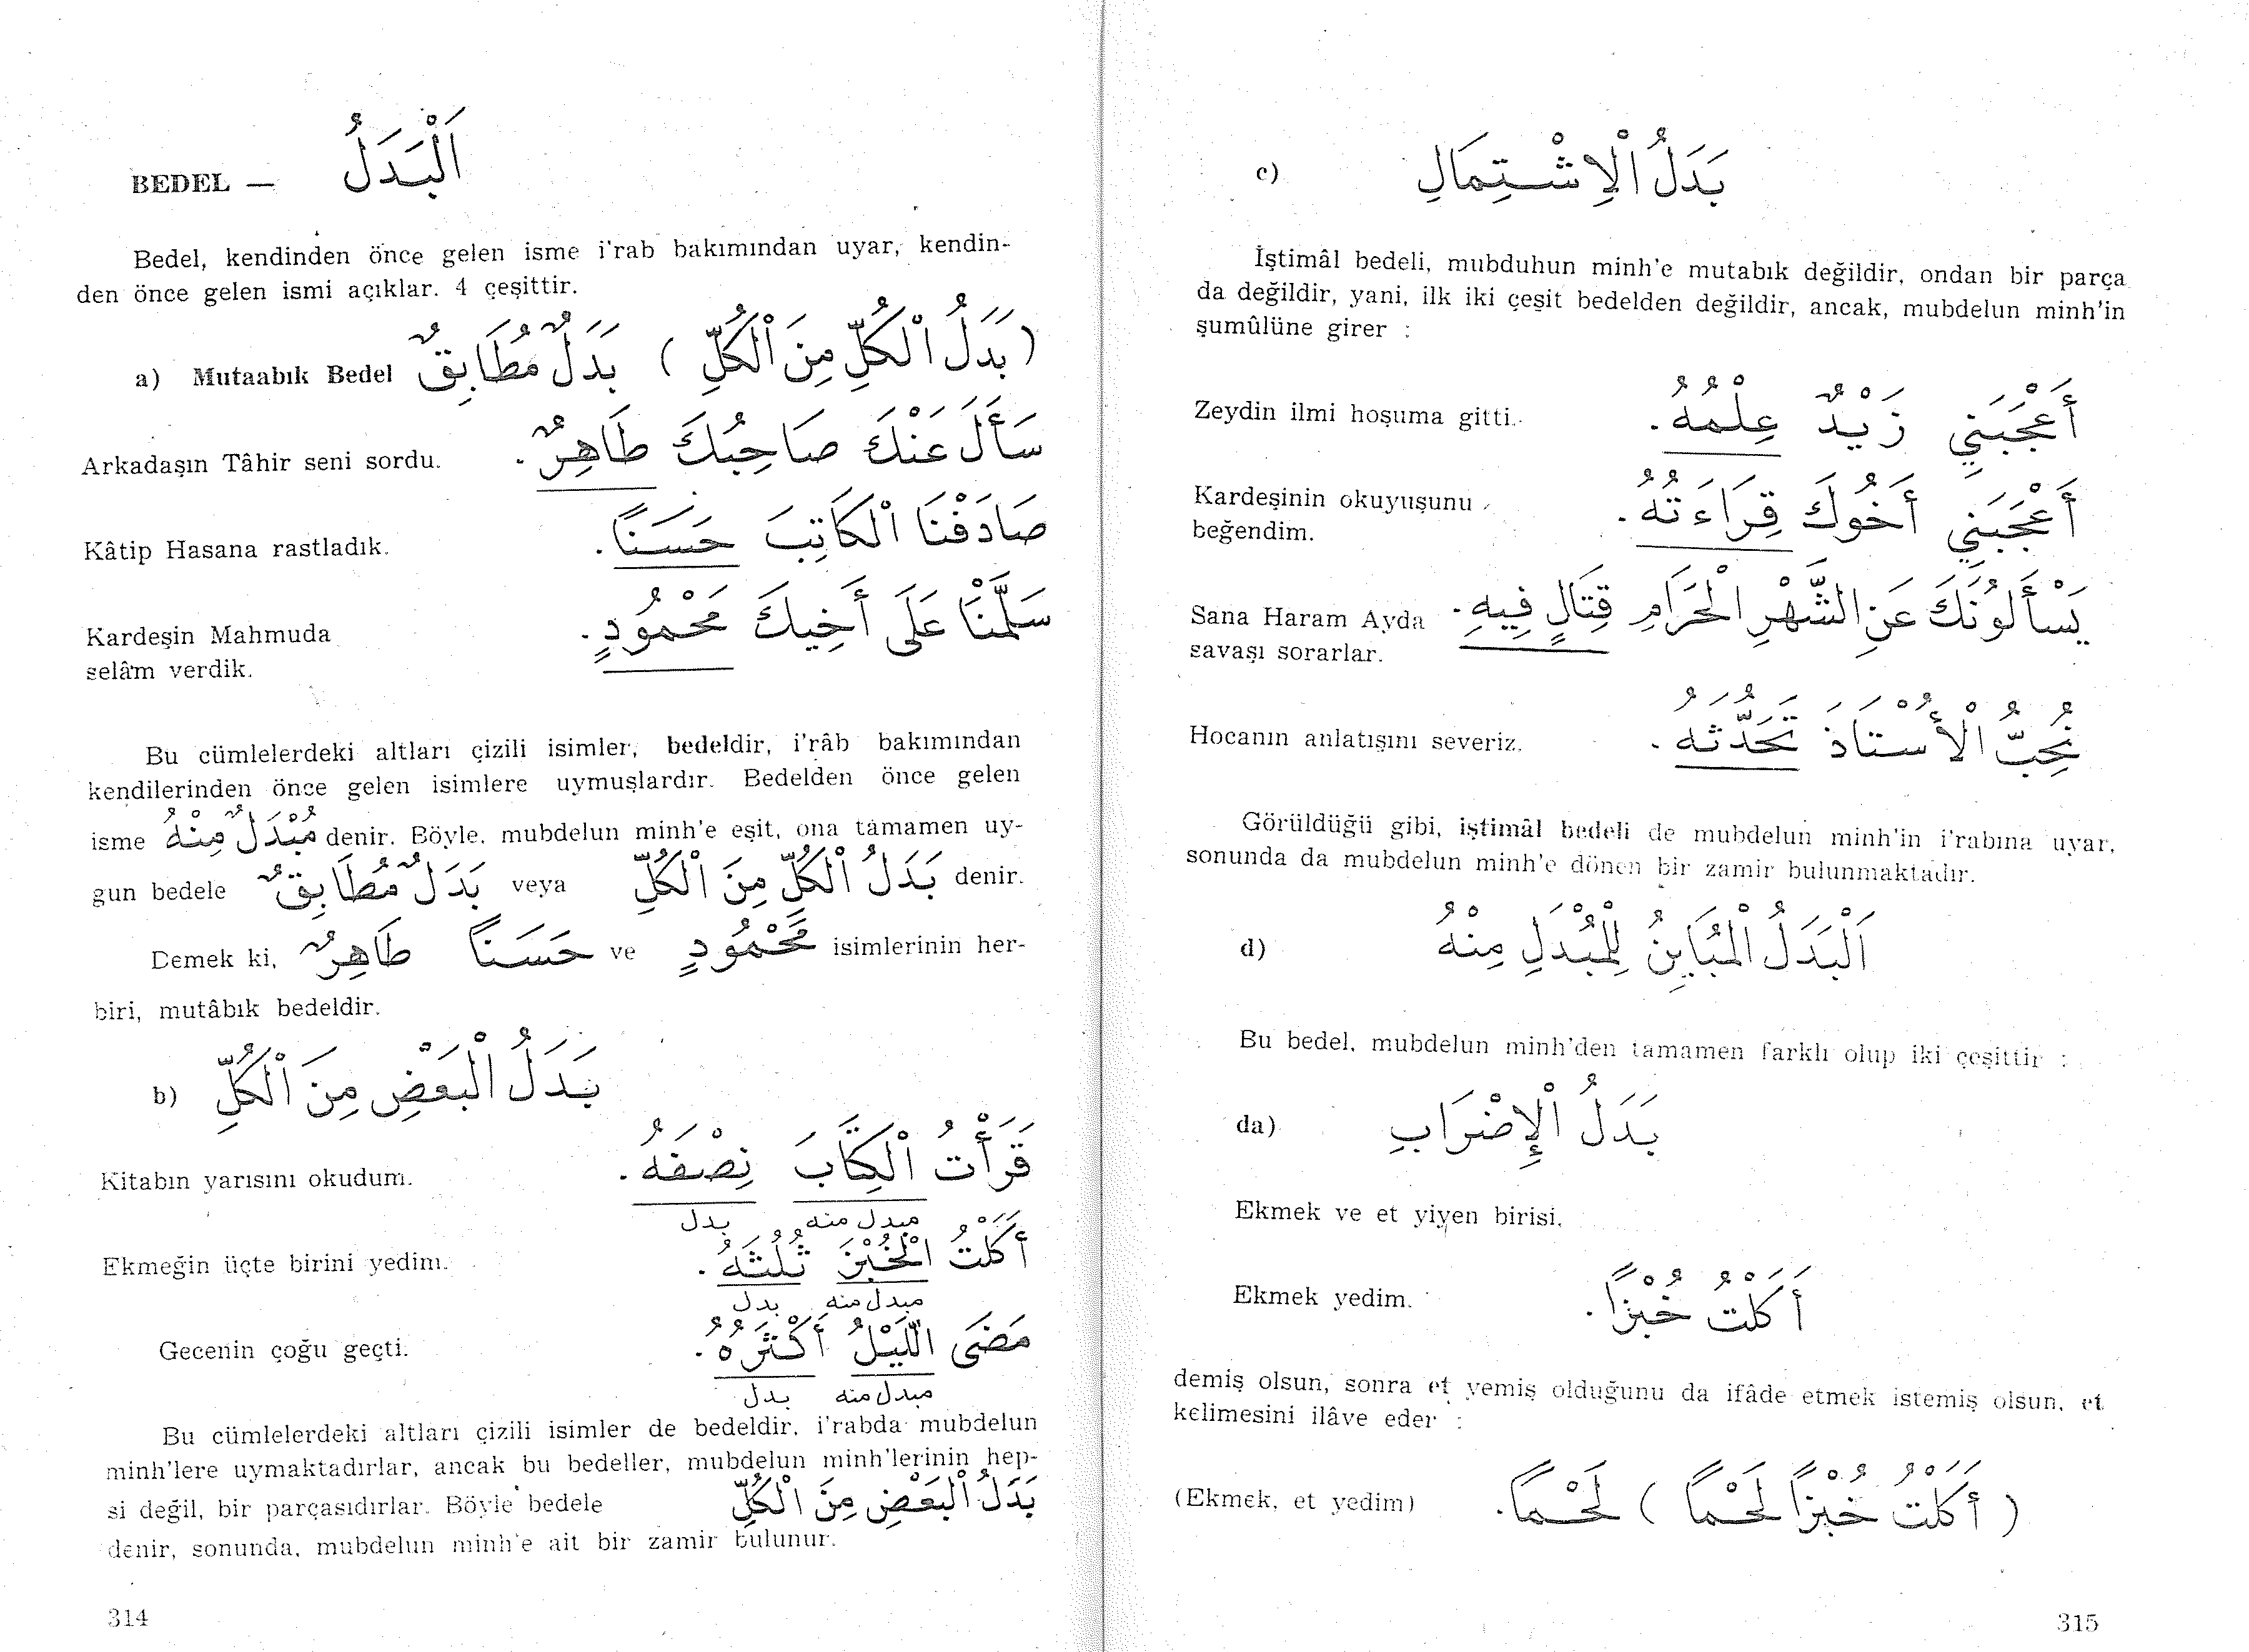 BEDEL — اَلْبَدَلُ
Bedel, kendinden önce gelen isme i'rab bakımından uyar, kendin-
den önce gelen ismi açıklar. 4 çeşittir.
a) Mutaabık Bedel بَدَلٌ مُطَابِقٌ (بَدَلُ الْكُلِّ مِنَ الْكُلِّ)
Arkadaşın Tâhir seni sordu. سَأَلَ عَنْكَ صَاحِبُكَ طَاهِرٌ.
Kâtip Hasana rastladık. صَادَفْنَا الْكَاتِبَ حَسَنًا.
Kardeşin Mahmuda سَلَّمْنَا عَلَى أَخِيكَ مَحْمُودٍ.
selâm verdik.
Bu cümlelerdeki altları çizili isimler, bedeldir, i'râb bakımından
kendilerinden önce gelen isimlere uymuşlardır. Bedelden önce gelen
isme مُبْدَلٌ مِنْهُ denir. Böyle, mubdelun minh'e eşit, ona tamamen uy-
gun bedele بَدَلٌ مُطَابِقٌ veya بَدَلُ الْكُلِّ مِنَ الْكُلِّ denir.
Demek ki, طَاهِرٌ حَسَنًا ve مَحْمُودٍ isimlerinin her-
biri, mutâbık bedeldir.
b) بَدَلُ الْبَعْضِ مِنَ الْكُلِّ
Kitabın yarısını okudum. قَرَأْتُ الْكِتَابَ نِصْفَهُ.
مبدل منه بدل
Ekmeğin üçte birini yedim. أَكَلْتُ الْخُبْزَ ثُلُثَهُ.
مبدل منه بدل
Gecenin çoğu geçti. مَضَى اللَّيْلُ أَكْثَرُهُ.
مبدل منه بدل
Bu cümlelerdeki altları çizili isimler de bedeldir, i'rabda mubdelun
minh'lere uymaktadırlar, ancak bu bedeller, mubdelun minh'lerinin hep-
si değil, bir parçasıdırlar. Böyle bedele بَدَلُ الْبَعْضِ مِنَ الْكُلِّ
denir, sonunda, mubdelun minh'e ait bir zamir bulunur.
314
c) بَدَلُ الْاِشْتِمَالِ
İştimâl bedeli, mubduhun minh'e mutabık değildir, ondan bir parça
da değildir, yani, ilk iki çeşit bedelden değildir, ancak, mubdelun minh'in
şumûlüne girer :
Zeydin ilmi hoşuma gitti. أَعْجَبَنِي زَيْدٌ عِلْمُهُ.
Kardeşinin okuyuşunu أَعْجَبَنِي أَخُوكَ قِرَاءَتُهُ.
beğendim.
Sana Haram Ayda يَسْأَلُونَكَ عَنِ الشَّهْرِ الْحَرَامِ قِتَالٍ فِيهِ.
savaşı sorarlar.
Hocanın anlatışını severiz. نُحِبُّ الْأُسْتَاذَ تَحَدُّثَهُ.
Görüldüğü gibi, iştimâl bedeli de mubdelun minh'in i'rabına uyar,
sonunda da mubdelun minh'e dönen bir zamir bulunmaktadır.
d) اَلْبَدَلُ الْمُبَايِنُ لِلْمُبْدَلِ مِنْهُ
Bu bedel, mubdelun minh'den tamamen farklı olup iki çeşittir :
da) بَدَلُ الْإِضْرَابِ
Ekmek ve et yiyen birisi,
Ekmek yedim. أَكَلْتُ خُبْزًا.
demiş olsun, sonra et yemiş olduğunu da ifâde etmek istemiş olsun, et
kelimesini ilâve eder :
(Ekmek, et yedim) (أَكَلْتُ خُبْزًا لَحْمًا) لَحْمًا.
315